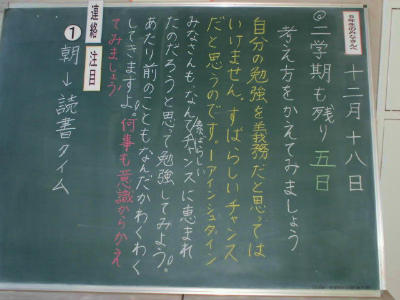 6年生のみなさんへ
十二月十八日
◎二学期も残り五日
考え方をかえてみましょう
自分の勉強を義務だと思っては
いけません。すばらしいチャンス
だと思うのです。ーアインシュタイン
みなさんも、なんて素晴らしいチャンスに恵まれ
たのだろうと思って勉強してみよう。
あたり前のこともなんだかわくわく
してきますよ。何事も意識からかえ
てみましょう
連絡 注目
① 朝→読書タイム